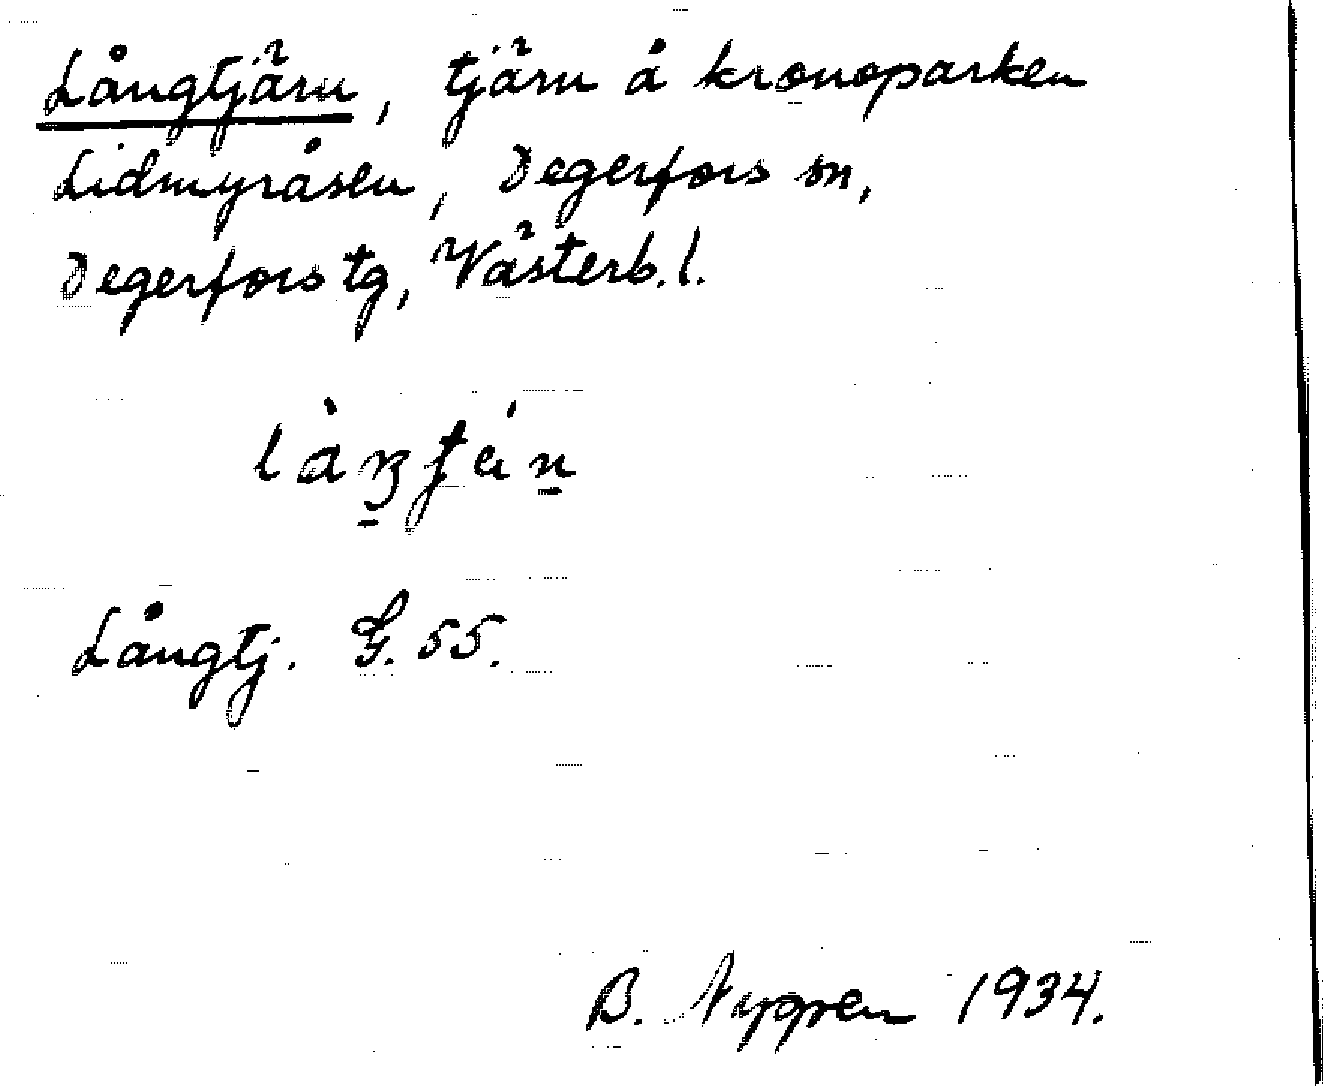 Långtjärn, tjärn å kronoparken
Lidmyråsen, Degerfors sn,
Degerfors tg, Västerb. l.
Långtj. G. 55.
B. Nyppen 1934.